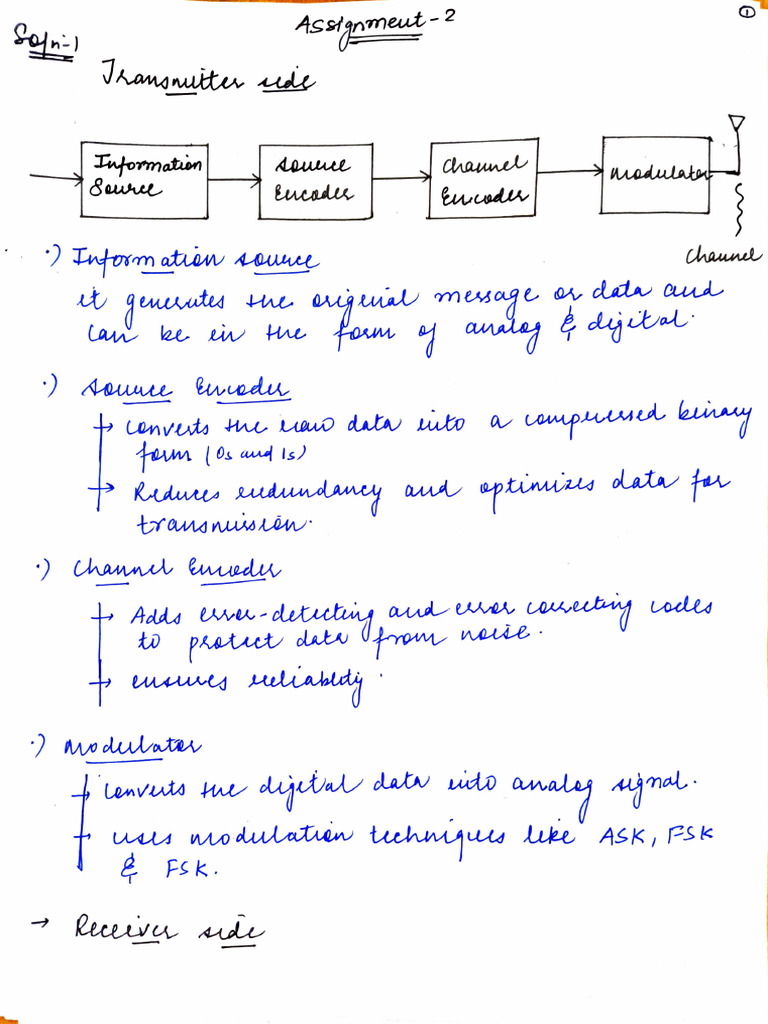 Assignment-2
①
Soln:-1
Transmitter side
Information
Source
Source
Encoder
Channel
Encoder
Modulator
Channel
·) Information source
it generates the original message or data and
can be in the form of analog & digital.
·) Source Encoder
→ Converts the raw data into a compressed binary
form (0s and 1s)
→ Reduces redundancy and optimizes data for
transmission.
·) Channel Encoder
→ Adds error-detecting and error correcting codes
to protect data from noise.
→ ensures reliability.
·) Modulator
→ Converts the digital data into analog signal.
→ uses modulation techniques like ASK, FSK
& FSK.
→ Receiver side